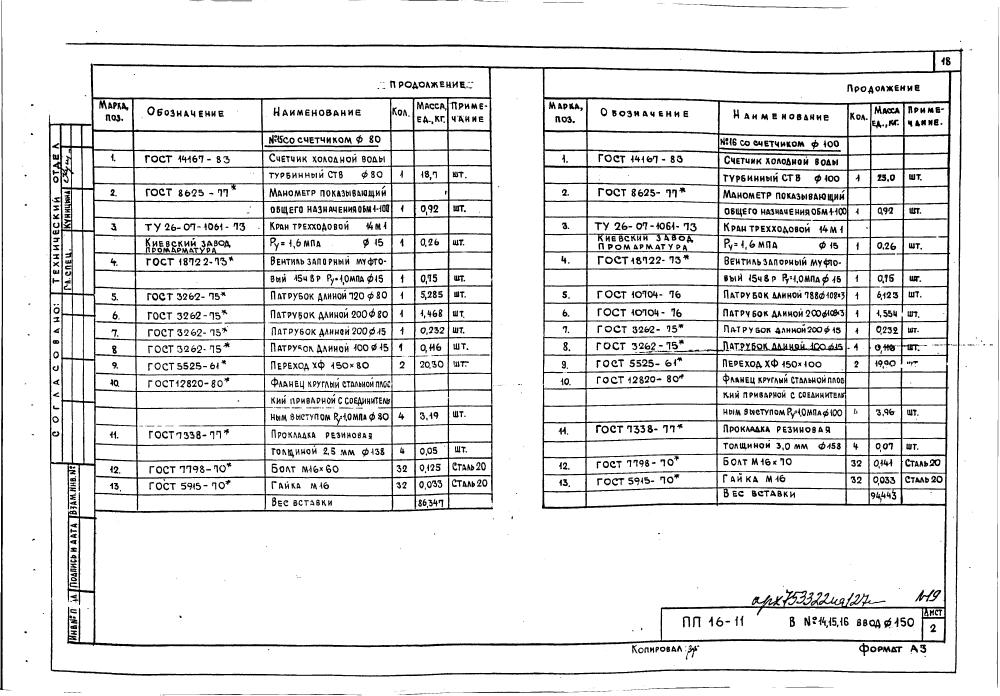 18
ПРОДОЛЖЕНИЕ
МАРКА, ПОЗ. ОБОЗНАЧЕНИЕ НАИМЕНОВАНИЕ КОЛ. МАССА, ЕД., КГ. ПРИМЕ-ЧАНИЕ
№15 СО СЧЕТЧИКОМ ϕ 80
1. ГОСТ 14167-83 СЧЕТЧИК ХОЛОДНОЙ ВОДЫ
ТУРБИННЫЙ СТВ ϕ80 1 18,7 ШТ.
2. ГОСТ 8625-77* МАНОМЕТР ПОКАЗЫВАЮЩИЙ
ОБЩЕГО НАЗНАЧЕНИЯ ОБМ1-100 1 0,92 ШТ.
3 ТУ 26-07-1061-73 КРАН ТРЕХХОДОВОЙ 14М1
КИЕВСКИЙ ЗАВОД ПРОМАРМАТУРА Ру=1,6 МПА ϕ 15 1 0,26 ШТ.
4. ГОСТ 18722-73* ВЕНТИЛЬ ЗАПОРНЫЙ МУФТО-
ВЫЙ 15Ч8Р Ру=1,0МПА ϕ15 1 0,75 ШТ.
5. ГОСТ 3262-75* ПАТРУБОК ДЛИНОЙ 720 ϕ80 1 5,285 ШТ.
6. ГОСТ 3262-75* ПАТРУБОК ДЛИНОЙ 200 ϕ80 1 1,468 ШТ.
7. ГОСТ 3262-75* ПАТРУБОК ДЛИНОЙ 200 ϕ15 1 0,232 ШТ.
8 ГОСТ 3262-75* ПАТРУБОК ДЛИНОЙ 100 ϕ15 1 0,116 ШТ.
9. ГОСТ 5525-61* ПЕРЕХОД ХФ 150×80 2 20,30 ШТ.
10. ГОСТ 12820-80* ФЛАНЕЦ КРУГЛЫЙ СТАЛЬНОЙ ПЛОС
КИЙ ПРИВАРНОЙ С СОЕДИНИТЕЛЬ
НЫМ ВЫСТУПОМ Ру=1,0МПА ϕ80 4 3,19 ШТ.
11. ГОСТ 7338-77* ПРОКЛАДКА РЕЗИНОВАЯ
ТОЛЩИНОЙ 2,5 ММ ϕ138 4 0,05 ШТ.
12. ГОСТ 7798-70* БОЛТ М16×60 32 0,125 СТАЛЬ 20
13. ГОСТ 5915-70* ГАЙКА М16 32 0,033 СТАЛЬ 20
ВЕС ВСТАВКИ 86,347
ПРОДОЛЖЕНИЕ
МАРКА, ПОЗ. ОБОЗНАЧЕНИЕ НАИМЕНОВАНИЕ КОЛ. МАССА ЕД., КГ. ПРИМЕ-ЧАНИЕ.
№16 СО СЧЕТЧИКОМ ϕ 100
1. ГОСТ 14167-83 СЧЕТЧИК ХОЛОДНОЙ ВОДЫ
ТУРБИННЫЙ СТВ ϕ100 1 23,0 ШТ.
2. ГОСТ 8625-77* МАНОМЕТР ПОКАЗЫВАЮЩИЙ
ОБЩЕГО НАЗНАЧЕНИЯ ОБМ1-100 1 0,92 ШТ.
3. ТУ 26-07-1061-73 КРАН ТРЕХХОДОВОЙ 14М1
КИЕВСКИЙ ЗАВОД ПРОМАРМАТУРА Ру=1,6 МПА ϕ15 1 0,26 ШТ.
4. ГОСТ 18722-73* ВЕНТИЛЬ ЗАПОРНЫЙ МУФТО-
ВЫЙ 15Ч8Р Ру=1,0МПА ϕ15 1 0,75 ШТ.
5. ГОСТ 10704-76 ПАТРУБОК ДЛИНОЙ 788ϕ108×3 1 6,123 ШТ.
6. ГОСТ 10704-76 ПАТРУБОК ДЛИНОЙ 200ϕ108×3 1 1,554 ШТ.
7. ГОСТ 3262-75* ПАТРУБОК ДЛИНОЙ 200 ϕ15 1 0,232 ШТ.
8. ГОСТ 3262-75* ПАТРУБОК ДЛИНОЙ 100 ϕ15 1 0,116 ШТ.
9. ГОСТ 5525-61* ПЕРЕХОД ХФ 150×100 2 19,90 ШТ.
10. ГОСТ 12820-80* ФЛАНЕЦ КРУГЛЫЙ СТАЛЬНОЙ ПЛОС
КИЙ ПРИВАРНОЙ С СОЕДИНИТЕЛЬ
НЫМ ВЫСТУПОМ Ру=1,0МПА ϕ100 4 3,96 ШТ.
11. ГОСТ 7338-77* ПРОКЛАДКА РЕЗИНОВАЯ
ТОЛЩИНОЙ 3,0 ММ ϕ158 4 0,07 ШТ.
12. ГОСТ 7798-70* БОЛТ М16×70 32 0,141 СТАЛЬ 20
13. ГОСТ 5915-70* ГАЙКА М16 32 0,033 СТАЛЬ 20
ВЕС ВСТАВКИ 94,443
СОГЛАСОВАНО: ТЕХНИЧЕСКИЙ ОТДЕЛ
ГЛ. СПЕЦ. КУНИЦИНА
ИНВ.№ П ПОДПИСЬ И ДАТА ВЗАМ.ИНВ.№
N19
ПП 16-11 В №14,15,16 ВВОД ϕ150
ЛИСТ
2
КОПИРОВАЛ ФОРМАТ А3